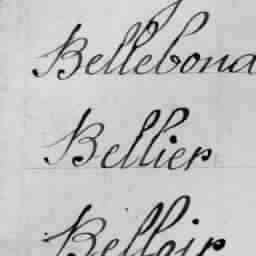 Bellebona
Bellier
Belloir